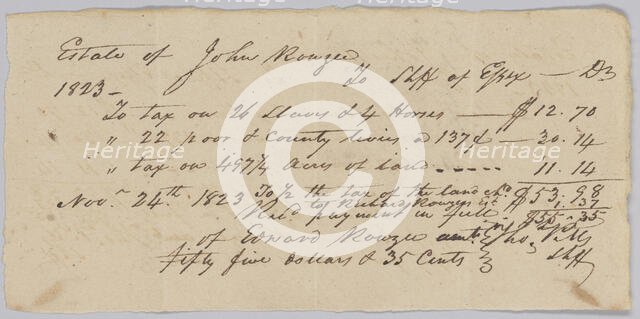 Estate of John Rouzee
To Shff of Essex — Dr
1823 –
To tax on 26 Slaves & 4 Horses — $12.70
" 22 poor & County levies a 137¢ — 30.14
" tax on 497¼ acres of land - - - - - 11.14
$53.98
To ½ the tax of the land chd
to Richard Rouzee's est 1.37
Nov. 24th 1823 Recd payment in full $55.35
of Edward Rouzee
fifty five dollars & 35 Cents Shff
Heritage
Heritage
Heritage
Heritage
Heritage
Heritage